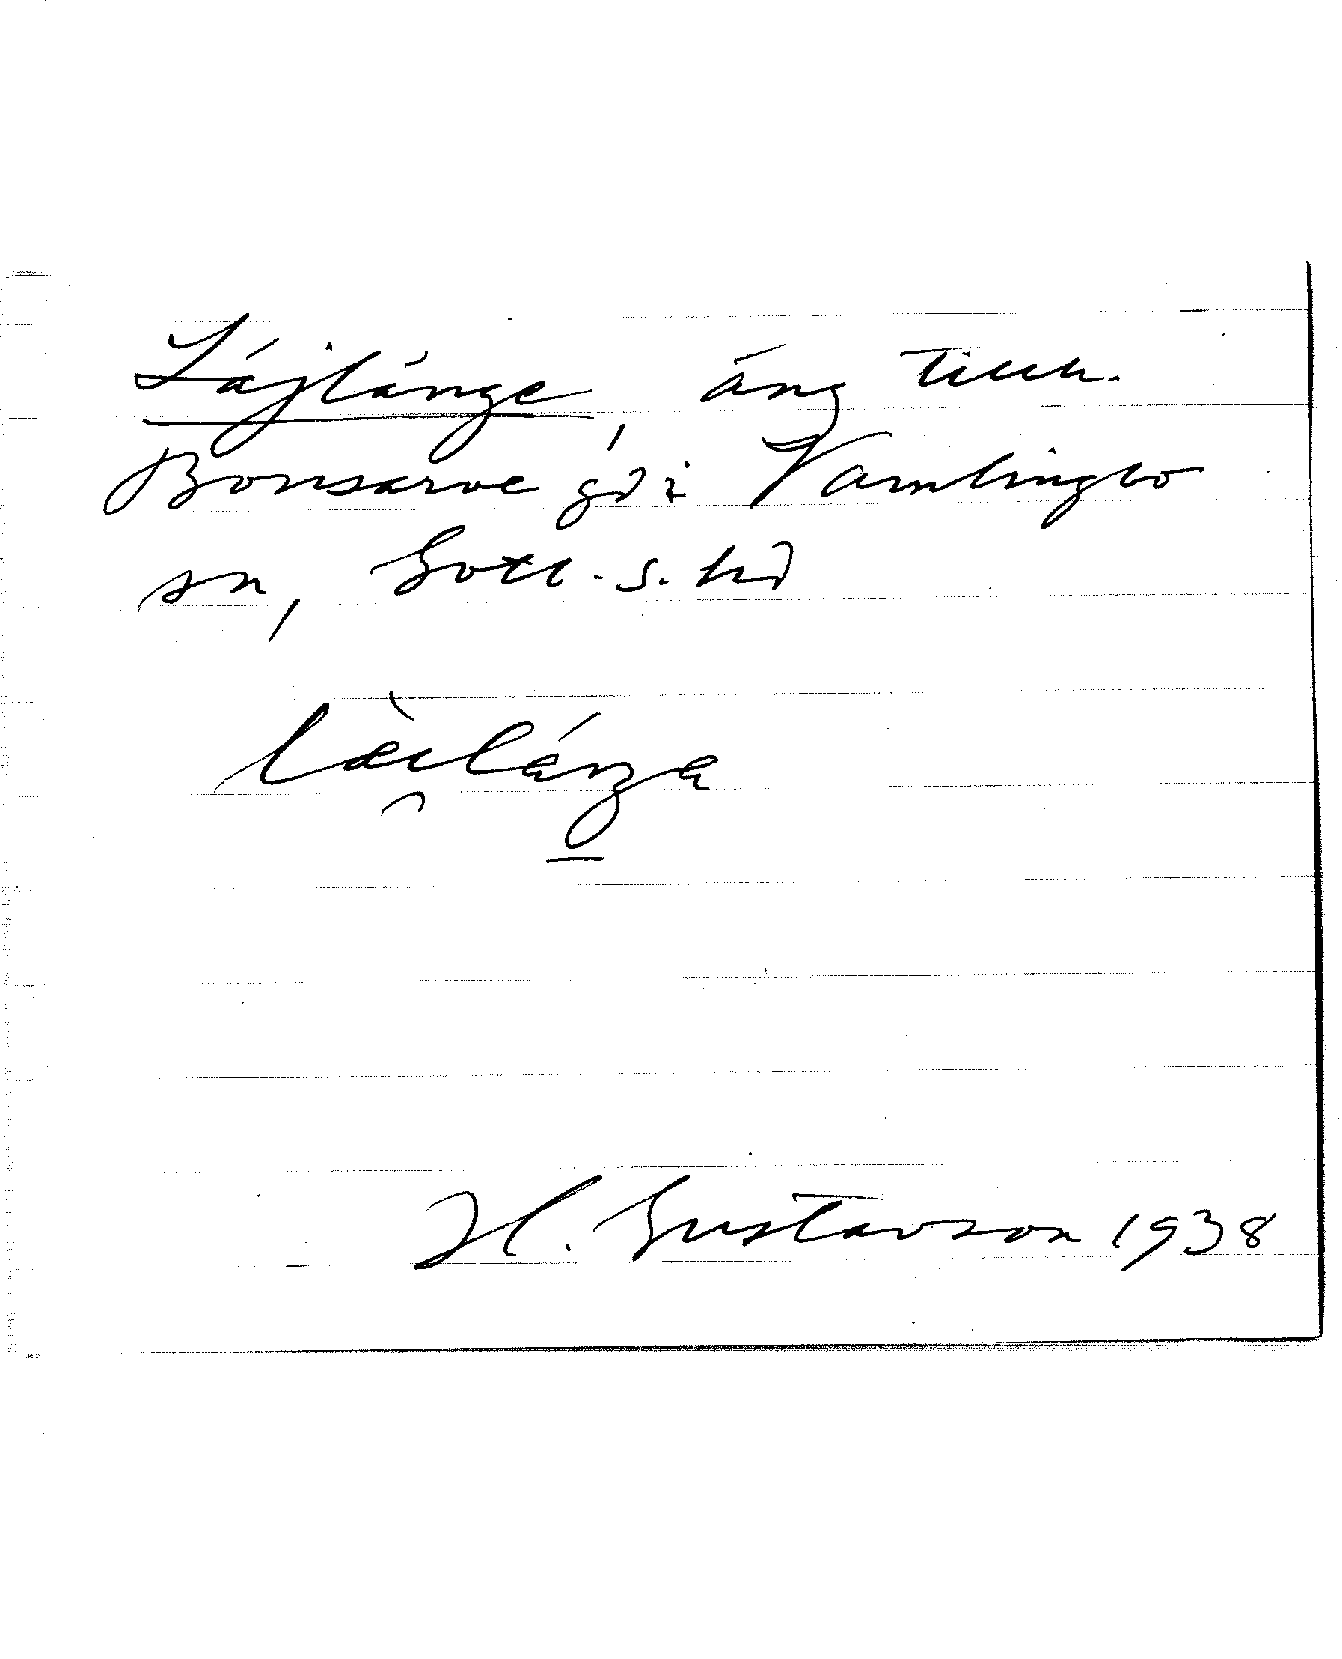 Läjlänge, äng tillh.
Bonsarve gd i Vamlingbo
sn, Gotl. s. hd
H. Gustavson 1938